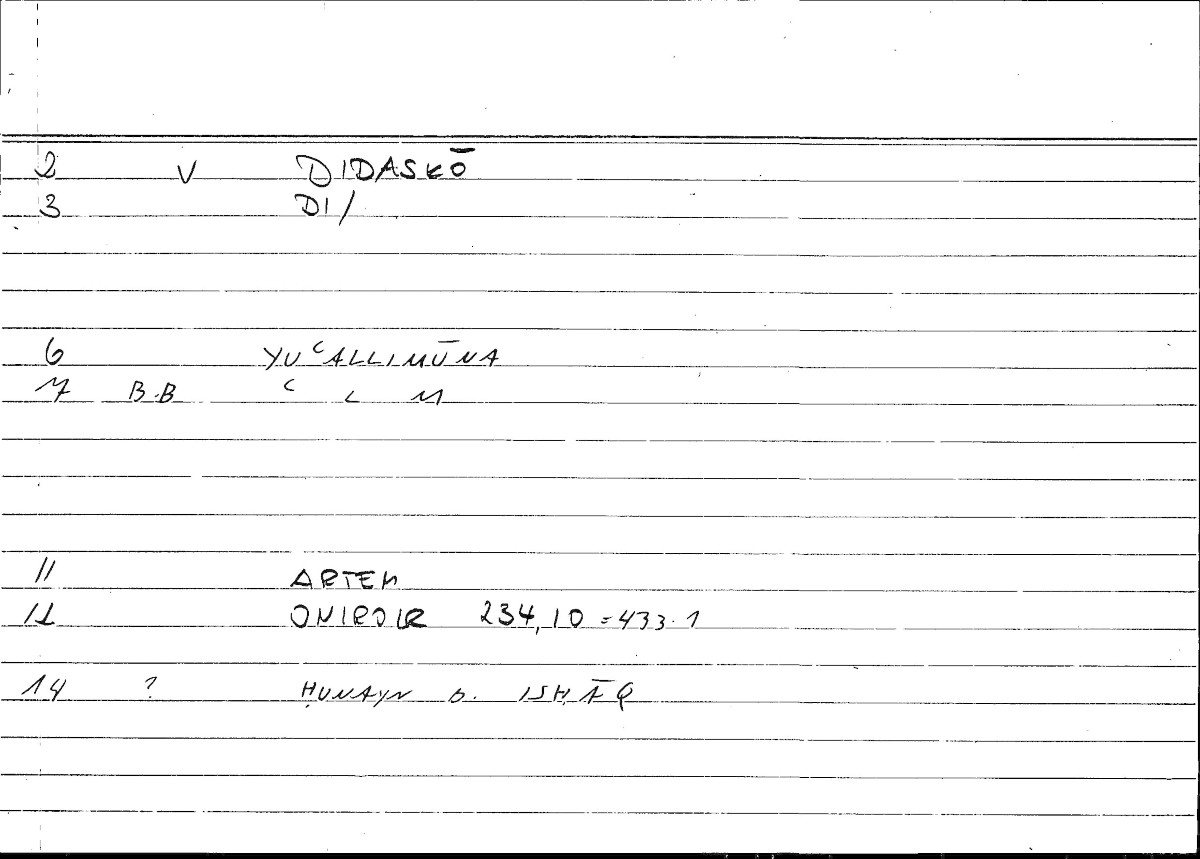 2 V DIDASKŌ
3 DI/
6 YUʿALLIMŪNA
7 B.B ʿ L M
11 ARTEM
12 ONIROIR 234,10 = 433.1
14 ? ḤUNAYN b. ISḤĀQ